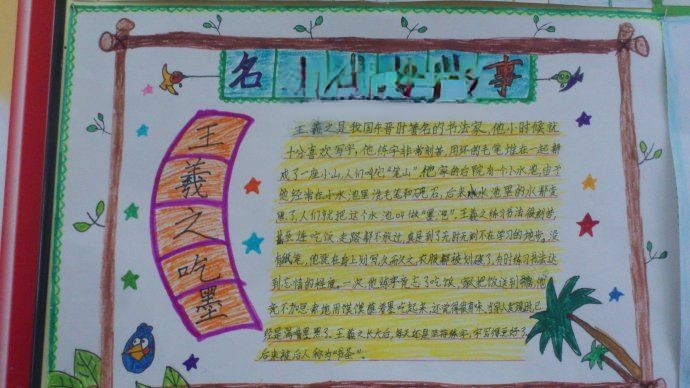 名
事
王羲之吃墨
王羲之是我国东晋时著名的书法家,他小时候就
十分喜欢写字,他练字非常刻苦,用坏的毛笔堆在一起都
成了一座小山,人们叫它"笔山",他家的后院有一个小水池,由于
他经常在小水池里洗毛笔和砚石,后来水池里的水都变
黑了,人们就把这个水池叫做"墨池"。王羲之练习书法很刻苦,
甚至连吃饭、走路都不放过,真是到了无时无刻不在学习的地步。没
有纸笔,他就在身上划写,久而久之,衣服都被划破了。有时练习书法达
到忘情的程度。一次,他练字竟忘了吃饭,家人把饭送到书房,他
竟不加思索地用馍馍蘸着墨吃起来,还觉得很有味。当家人发现时,已
经是满嘴墨黑了。王羲之长大后,每天还是坚持练字,字写得更好了,
后来被后人称为"书圣"。